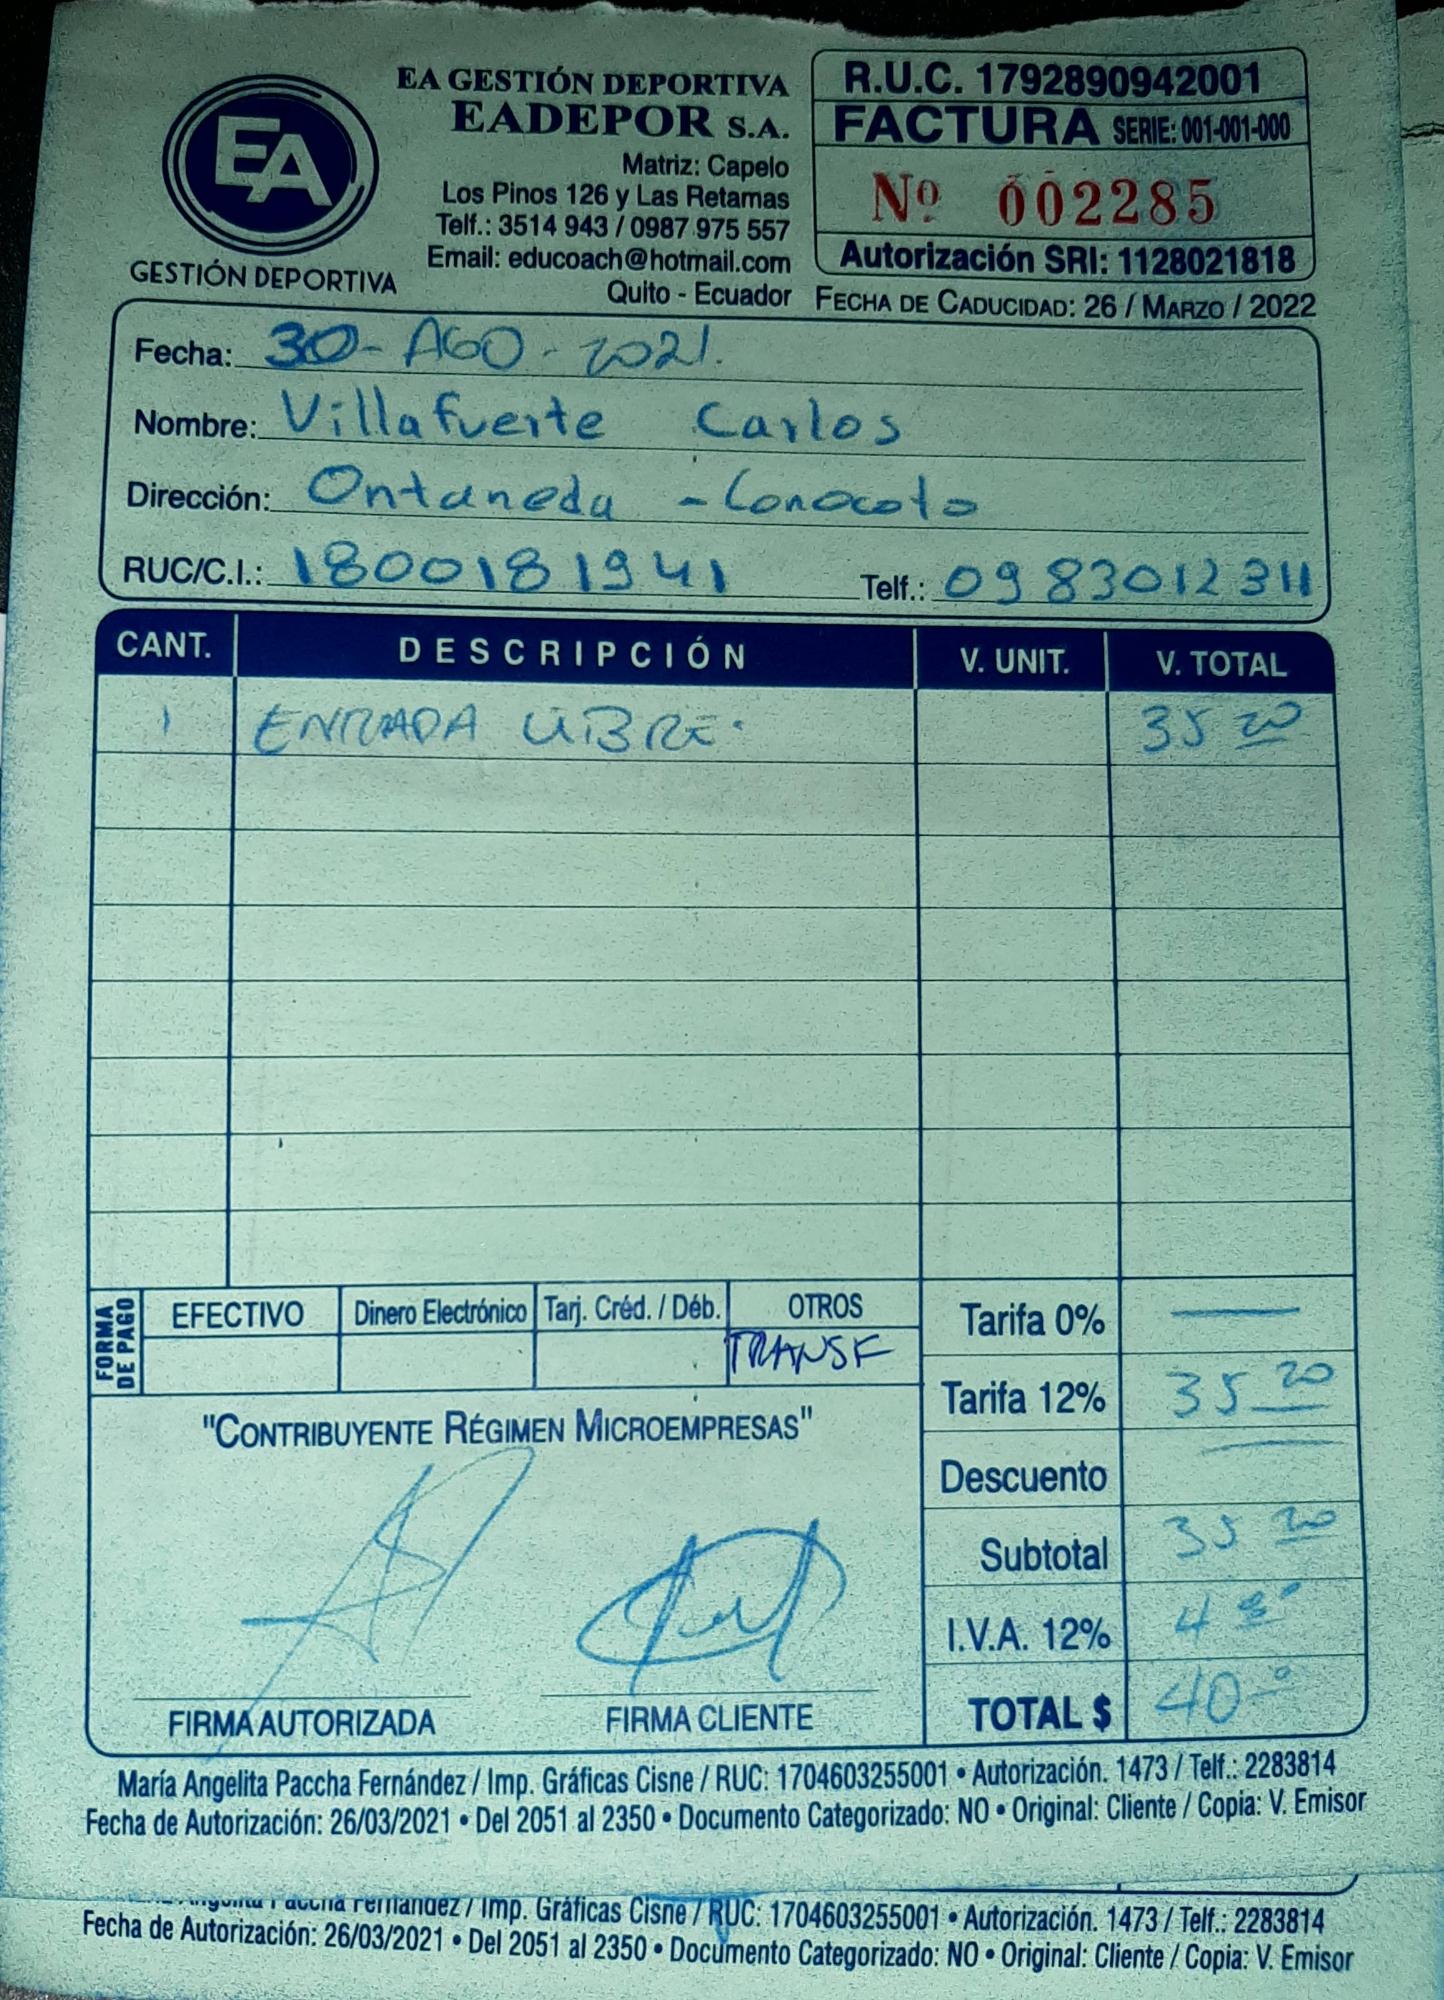 EA
GESTIÓN DEPORTIVA
EA GESTIÓN DEPORTIVA
EADEPOR S.A.
Matriz: Capelo
Los Pinos 126 y Las Retamas
Telf.: 3514 943 / 0987 975 557
Email: educoach@hotmail.com
Quito - Ecuador
R.U.C. 1792890942001
FACTURA SERIE: 001-001-000
Nº 002285
Autorización SRI: 1128021818
FECHA DE CADUCIDAD: 26 / MARZO / 2022
Fecha: 30-AGO-2021.
Nombre: Villafuerte Carlos
Dirección: Ontaneda - Conocoto
RUC/C.I.: 1800181941 Telf.: 0983012311
CANT. DESCRIPCIÓN V. UNIT. V. TOTAL
1 ENTRADA LIBRE. 35 20
FORMA DE PAGO
EFECTIVO Dinero Electrónico Tarj. Créd. / Déb. OTROS
TRANSF
Tarifa 0% —
Tarifa 12% 35 20
Descuento —
Subtotal 35 20
I.V.A. 12% 4
TOTAL $ 40
"CONTRIBUYENTE RÉGIMEN MICROEMPRESAS"
FIRMA AUTORIZADA FIRMA CLIENTE
María Angelita Paccha Fernández / Imp. Gráficas Cisne / RUC: 1704603255001 • Autorización. 1473 / Telf.: 2283814
Fecha de Autorización: 26/03/2021 • Del 2051 al 2350 • Documento Categorizado: NO • Original: Cliente / Copia: V. Emisor
Angelita Paccha Fernández / Imp. Gráficas Cisne / RUC: 1704603255001 • Autorización. 1473 / Telf.: 2283814
Fecha de Autorización: 26/03/2021 • Del 2051 al 2350 • Documento Categorizado: NO • Original: Cliente / Copia: V. Emisor